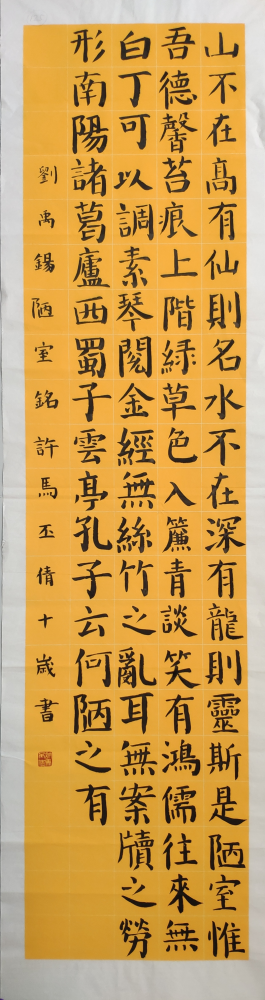 山不在高有仙則名水不在深有龍則靈斯是陋室惟
吾德馨苔痕上階緑草色入簾青談笑有鴻儒往來無
白丁可以調素琴閱金經無絲竹之亂耳無案牘之勞
形南陽諸葛廬西蜀子雲亭孔子云何陋之有
劉禹錫陋室銘許馬丕倩十歲書